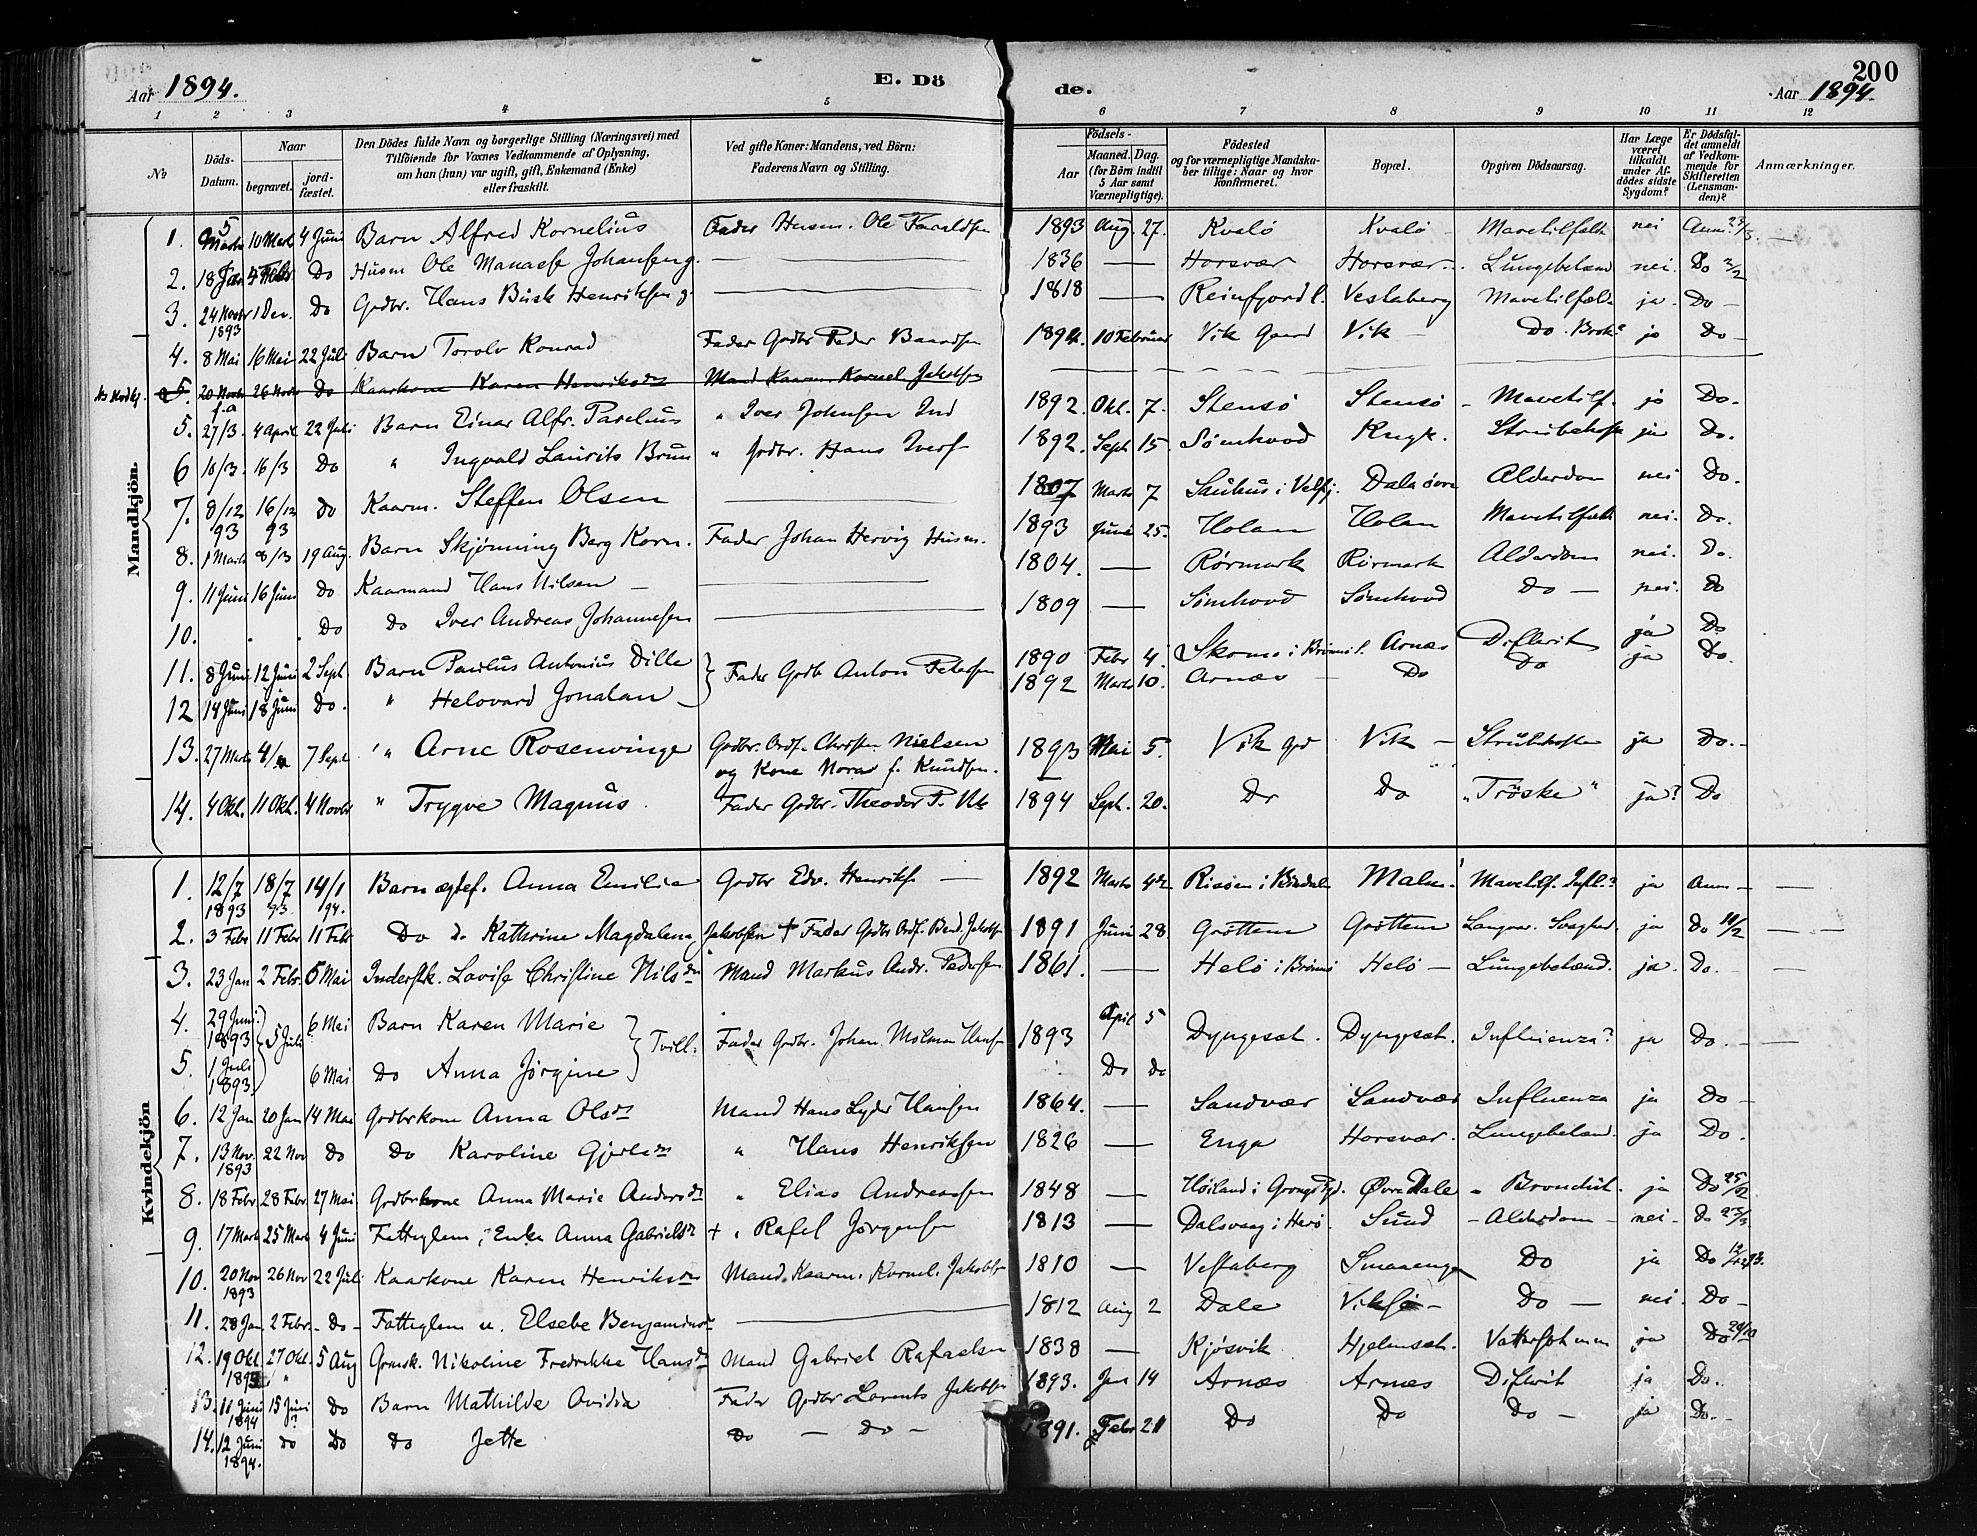 200
Aar 1894. E. Dö de. Aar 1894.
1 2 3 4 5 6 7 8 9 10 11 12
No
Döds-Datum.
Naar begravet. jordfæstet.
Den Dödes fulde Navn og borgerlige Stilling (Næringsvei) med Tilföiende for Voxnes Vedkommende af Oplysning, om han (hun) var ugift, gift, Enkemand (Enke) eller fraskilt.
Ved gifte Koner: Mandens, ved Börn: Faderens Navn og Stilling.
Födsels-
Aar Maaned. Dag. (for Börn indtil 5 Aar samt Værnepligtige).
Födested og for værnepligtige Mandskaber tillige: Naar og hvor konfirmeret.
Bopæl.
Opgiven Dödsaarsag.
Har Læge været tilkaldt under Afdödes sidste Sygdom?
Er Dödsfaldet anmeldt af Vedkommende for Skifteretten (Lensmanden)?
Anmærkninger.
Mandkjön.
1. 5 Marts 10 Mart 4 Juni Barn Alfred Kornelius Fader Husm. Ole Faraldsen 1893 Aug. 27. Kvalö Kvalö Mavetilfælde nei Anm. 23/3
2. 18 Jan 4 Febr Do Husm Ole Manasse Johansen g. 1836 Horsvær Horsvær Lungebetænd nei. Do 3/2
3. 24 Novbr 1893 1 Dec. Do Grdbr. Hans Busk Henriksen g. 1818 Reinfjord Vestaberg Mavetilfæld ja. Do
4. 8 Mai 16 Mai 22 Juli Barn Torolv Konrad Fader Grdbr Peder Baardsen 1894. 10 Februar Vik Gaard Vik Do. Brok? ja Do
5. 20 Novbr 26 Novb Do Kaarkone Karen Henriksdr Mand Kaarm. Kornel Jakobsen
5. 27/3. 4 April. 22 Juli Barn Einar Alfr. Paselius " Iver Johnsen Ind 1892. Okt. 7. Stensö Stensö Mavetilf. ja Do.
6 10/3. 16/3 Do " Ingvald Laurits Bruun " Grdbr. Hans Ivers 1892. Sept 15. Sömhovd Strubehoste ja Do.
7. 8/12 93 16/12 93 Do Kaarm. Steffen Olsen 1807 Marts 7 Sauhus i Velfj. Dala övre Alderdom nei Do.
8. 1 Marts 8/3 19 Aug. Barn Skjönning Berg Korn. Fader Johan Hervig Husm. 1893 Juni 25. Holan Holan Mavetilfælde nei. Do.
9. 11 Juni 16 Juni Do Kaarmand Hans Nilsen 1804. Rörmark Rörmark Alderdom nei. Do.
10. Do Do Iver Andreas Johannesen 1809 Sömhovd Sömhovd Do nei. Do
11. 8 Juni 12 Juni 2 Sept Barn Paulus Antonius Dille Fader Grdb Anton Petersen 1890 Febr 4. Skomo i Brönnö. Arnæs Difterit ja Do
12 14 Juni 18 Juni Do. " Helovard Jonatan 1892 Marts 10. Arnæs Do Do ja Do.
13. 27 Marts 4/4 7 Sept " Arne Rosenvinge Grdbr. Ordf. Christen Nielsen og Kone Nora f. Knudsen. 1893 Mai 5. Vik Grd Vik Strubehoste ja Do.
14. 4 Okt. 11 Okt. 4 Novbr " Trygve Magnus. Fader Grdbr. Theodor P. Vik 1894 Sept. 20. Do Do "Tröske" ja? Do
Kvindekjön
1. 12/7 1893 18/7 93 14/1 94. Barn ægtef. Anna Emilie Grdbr Edv. Henriks 1892 Marts 4de Risöen i Bindalen Malm. Mavetilf. Infl.? ja Anm
2. 3 Febr 11 Febr 11 Febr Do d. Kathrine Magdalena Jakobsen † Fader Grdbr Ordf. Bend. Jakobsen 1891 Juni 28. Gröttem Gröttem Langv. Svaghed. ja Do 10/2
3. 23 Jan 2 Febr. 5 Mai Inderstk. Lovise Christine Nilsdr Mand Markus Andr. Pedersen 1861. Helö i Brönnö Helö Lungebetænd. ja. Do.
4. 29 Juni 1893 5 Juli 6 Mai Barn Karen Marie Tvill. Fader Grdbr. Johan Molman Hansen 1893 April 5 Dyngesæt. Dyngesæt. Influenza? ja Do.
5. 1 Juli 1893. 6 Mai Do Anna Jörgine Do Do
6. 12 Jan 20 Jan 14 Mai Grdbrkone Anna Olsdr Mand Hans Lyder Hansen 1864. Sandvær Sandvær Influenza ja Do
7. 13 Nov. 1893 22 Nov Do Do Karoline Gjertsdr " Hans Henriksen 1826 Enga Horsvær. Lungebetænd. ja Do.
8. 18 Febr 28 Febr 27 Mai Grdbrkone Anna Marie Andersdr " Elias Andreassen 1848 Höiland i Grongs Pgd. Övre Dale Bronchit. ja Do 25/2
9. 17 Mart 25 Mart 4 Juni Fattiglem, Enke Anna Gabrielsdr + " Rafel Jörgensen 1813 Dalsvaag i Herö. Sund Alderdom nei. Do 23/3
10. 20 Nov 1893 26 Nov 22 Juli Kaarkone Karen Henriksdr Mand. Kaarm. Kornel. Jakobsen 1810 Vestaberg Smaaenge Do ja Do 12/12 93.
11. 28 Jan 2 Febr. Do Fattiglem u. Elsebe Benjaminsdr 1812 Aug 2 Dale Viksö Do nei. Do
12. 19 Okt 1893 27 Okt. 5 Aug Grmsk. Nikoline Fredrikke Hansdr Mand Gabriel Rafaelsen 1838 Kjösvik Hjelmsæt. Vattersot m.m ja Do 20/10
13. 11 Juni 1894 15 Juni Do Barn Mathilde Ovidia Fader Grdbr Lorents Jakobsen 1893. Jan 14 Arnæs Arnæs Difterit ja Do.
14. 12 Juni 1894. Do Do Do Jette Do Do 1891. Febr 21 Do Do Do ja Do.